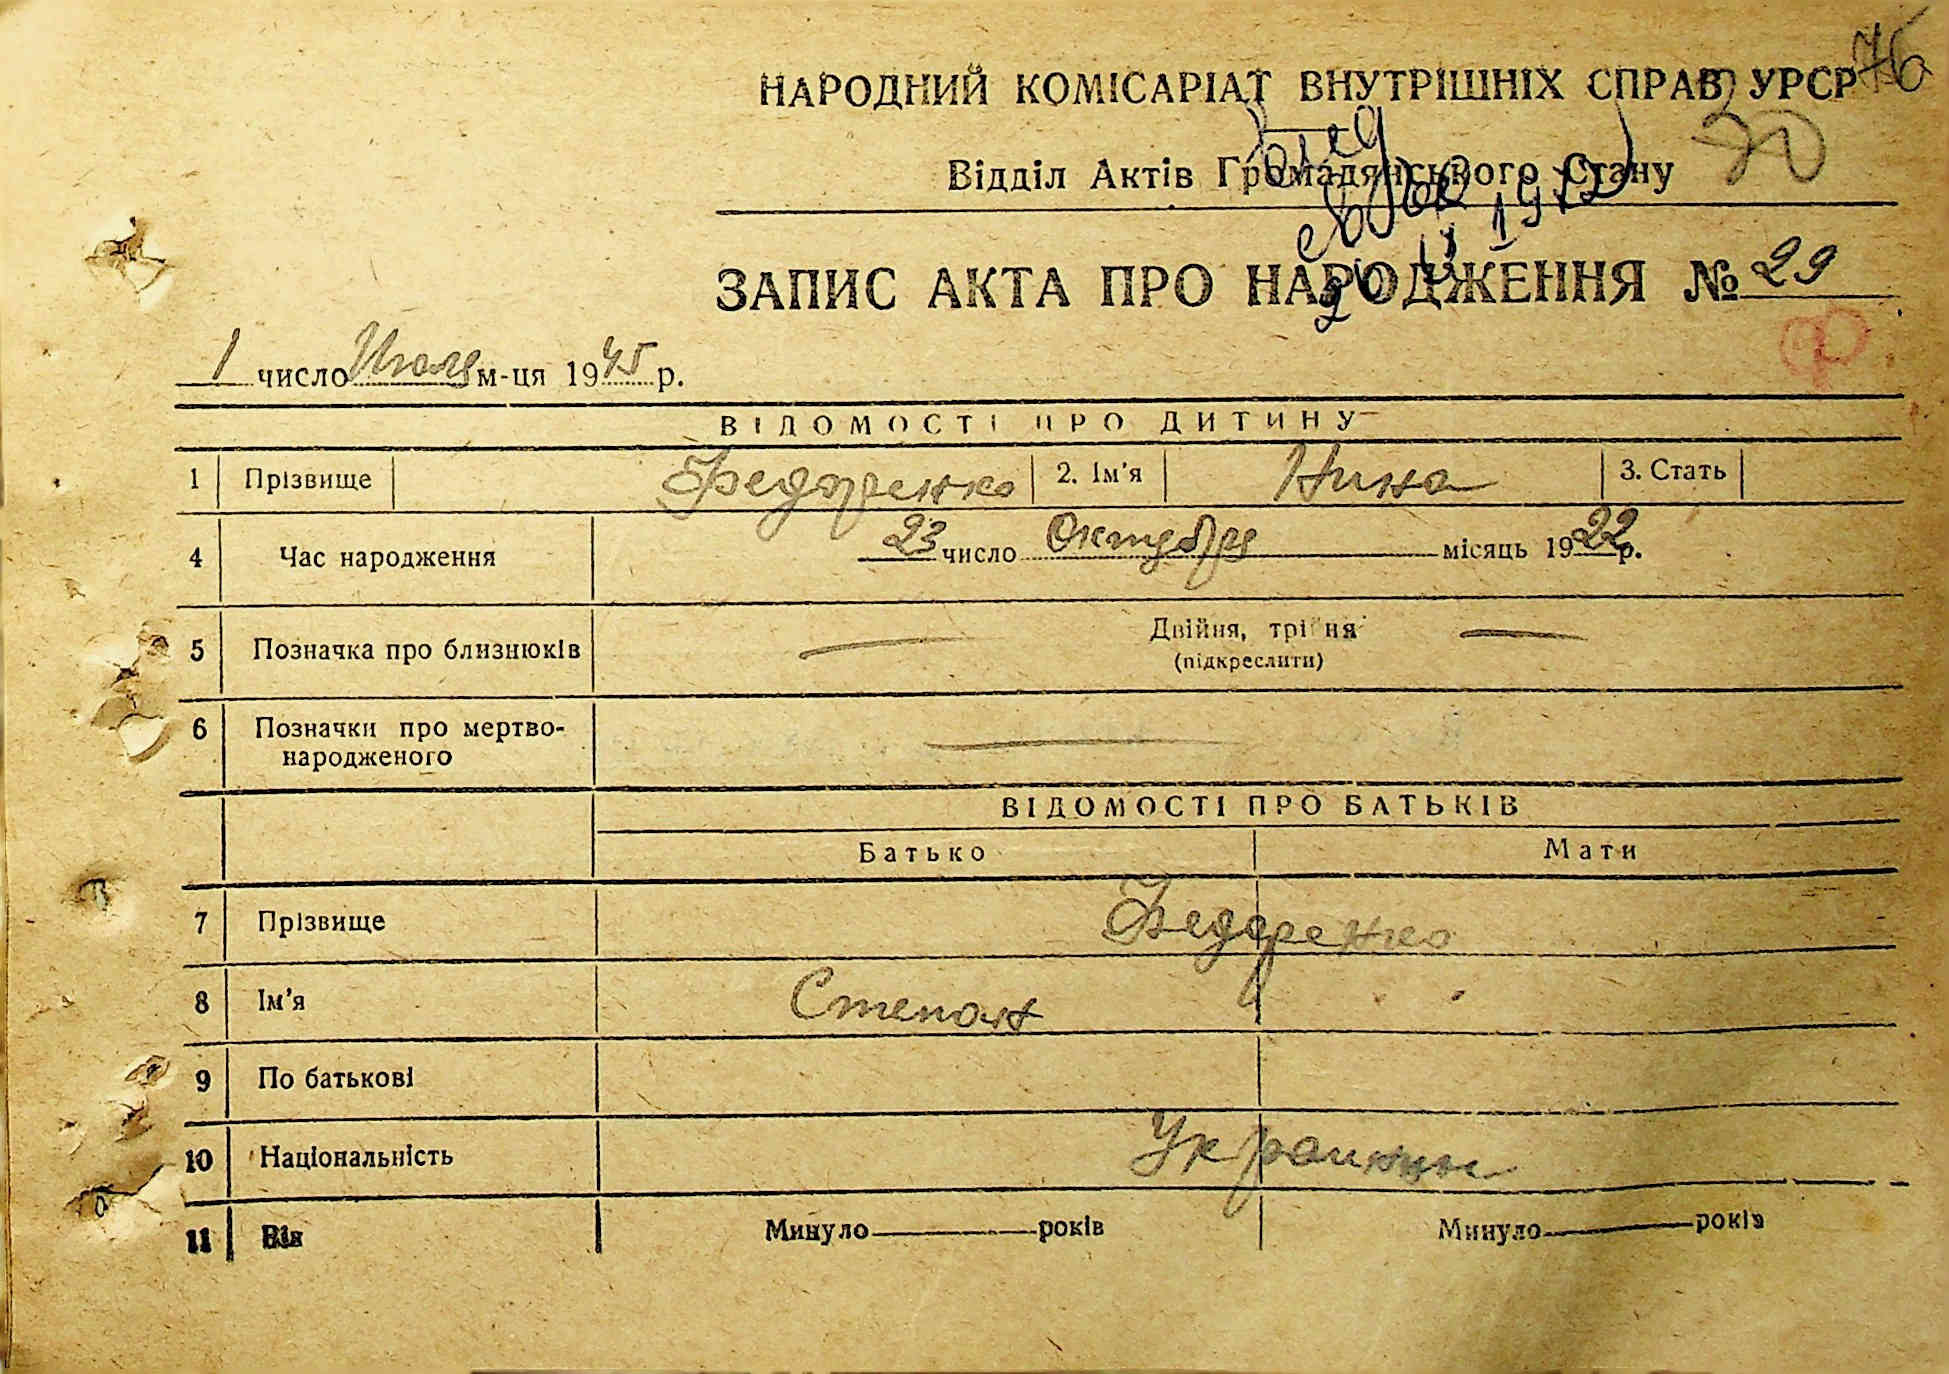 76
НАРОДНИЙ КОМІСАРІАТ ВНУТРІШНІХ СПРАВ УРСР
30
Відділ Актів Громадянського Стану
1972
ЗАПИС АКТА ПРО НАРОДЖЕННЯ № 29
1 число Июля м-ця 1945 р.
ВІДОМОСТІ ПРО ДИТИНУ
1 Прізвище Федоренко 2. Ім'я Нина 3. Стать
4 Час народження 23 число Октября місяць 1922 р.
5 Позначка про близнюків — Двійня, трійня —
(підкреслити)
6 Позначки про мертво-
народженого —
ВІДОМОСТІ ПРО БАТЬКІВ
Батько Мати
7 Прізвище Федоренко
8 Ім'я Степан
9 По батькові
10 Національність Украинцы
11 Вік Минуло — років Минуло — років